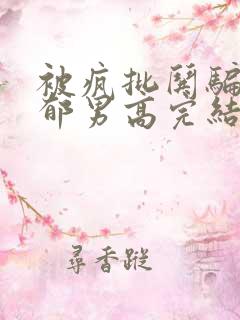 被疯批关骗
郁男高完结
寻香踪